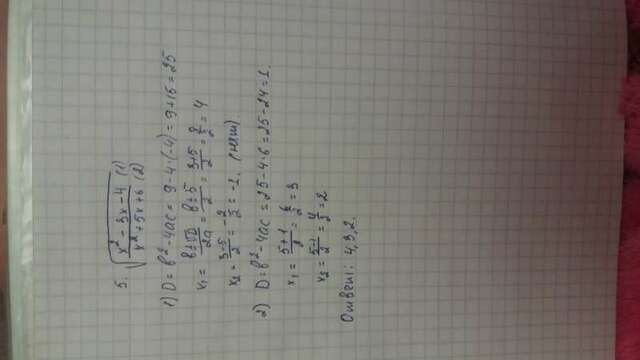 5. √((x² - 3x - 4 (1))/(x² + 5x + 6 (2)))
1) D = b² - 4ac = 9 - 4·(-4) = 9 + 16 = 25
x₁ = (b ± √D)/2a = (b ± 5)/2 = (3+5)/2 = 8/2 = 4
x₂ = (3-5)/2 = -2/2 = -1.
2) D = b² - 4ac = 25 - 4·6 = 25 - 24 = 1.
x₁ = (5+1)/2 = 6/2 = 3
x₂ = (5-1)/2 = 4/2 = 2
Ответ: 4, 3, 2.